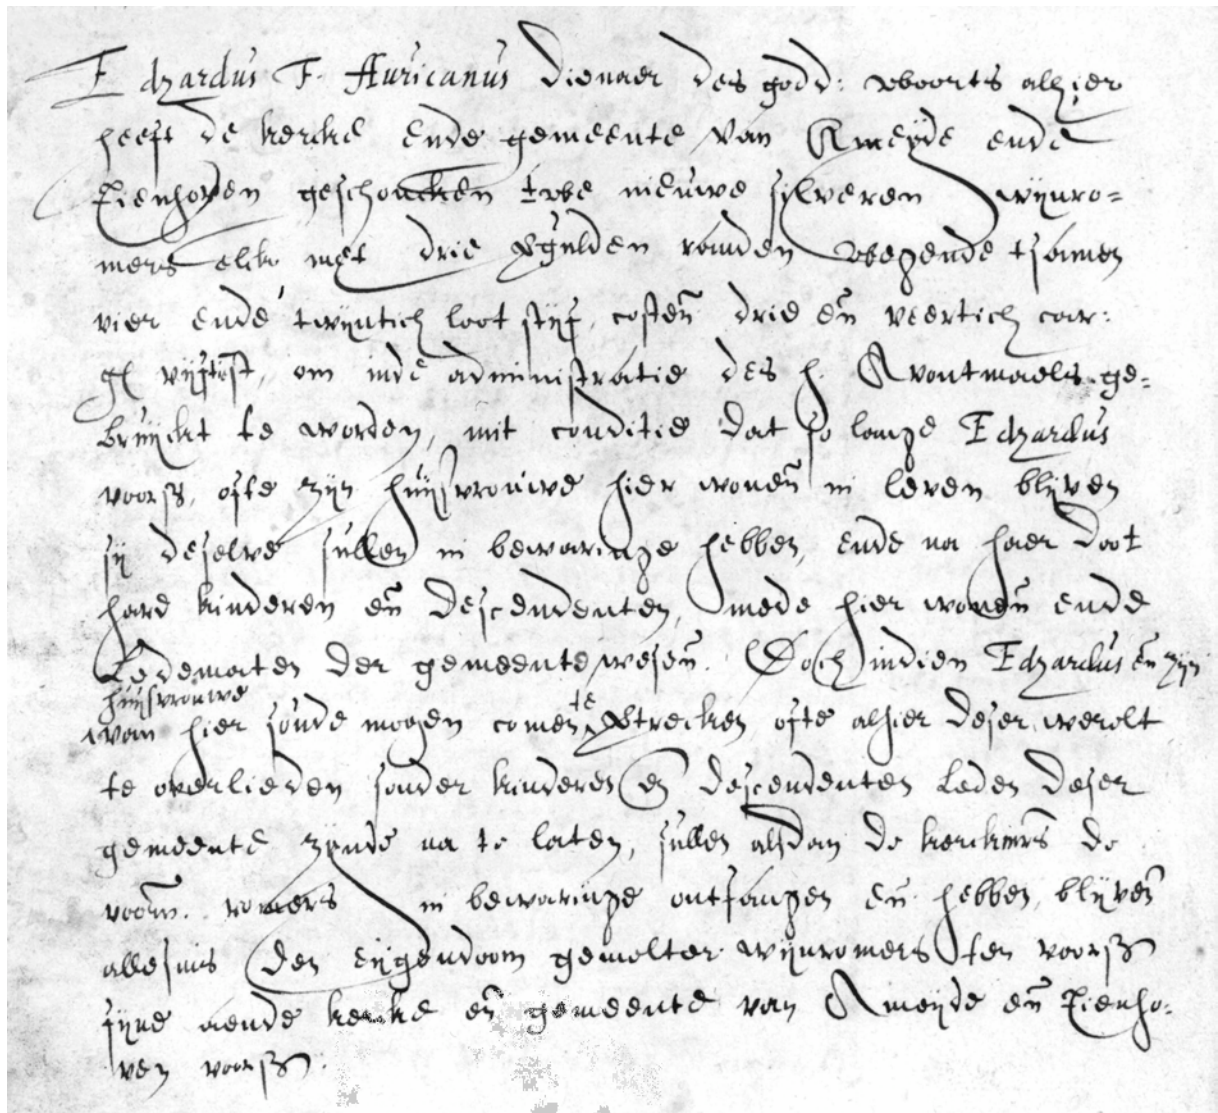 Edzardus F. Auricanus dienaer des godd: woorts alhier
heeft de kercke ende gemeente van Ameyde ende
Tienhoven geschoncken twe nieuwe silveren wijnro=
mers elck met drie vergulden randen wegende tsamen
vier ende twijntich loot stijf, costen drie en veertich car:
gl vijftest, om inde administratie des h. Avontmaels ge=
bruijckt te worden, mit conditie dat so lange Edzardus
voors, ofte zijn huijsvrouwe hier wonen in leven blijven
sij deselve sullen in bewaringe hebben, ende na haer doot
hare kinderen en descendenten, mede hier wonen ende
Ledematen der gemeente wesen. Doch indien Edzardus en zijn
huijsvrouwe
van hier soude mogen comen te vertrecken, ofte alhier deser werelt
te overlieden sonder kinderen en descendenten Leden deser
gemeente zijnde na te laten, sullen alsdan de kerckmrs de
voorn. romers in bewaringe ontfangen en hebben, blijven
allesins den eijgendoom gemelter wijnromers ten voors
sijne aende kercke en gemeente van Ameyde en Tienho=
ven voors.